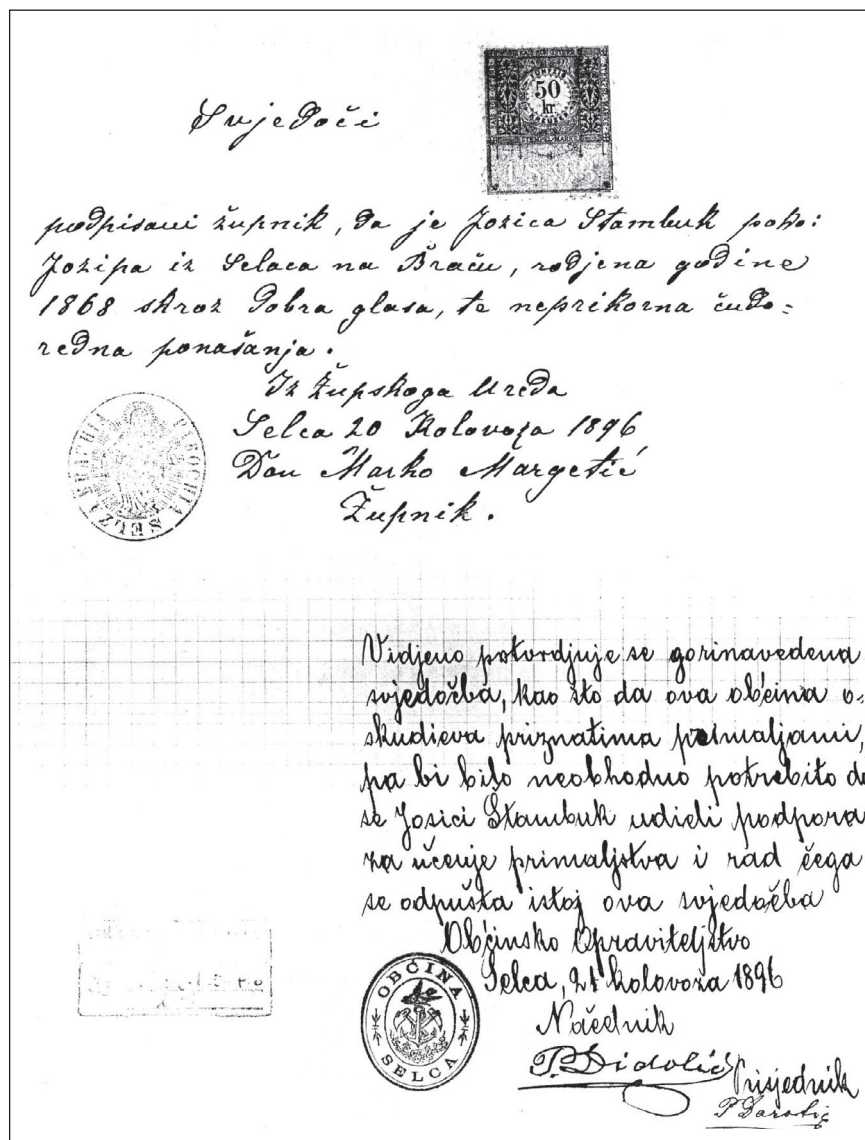 50
kr.
1893
Svjedoči
podpisani župnik, da je Jozica Štambuk poko:
Jozipa iz Selaca na Braču, rodjena godine
1868 skroz dobra glasa, te neprikorna ćudo=
redna ponašanja.
Iz Župskoga Ureda
Selca 20 Kolovoza 1896
Don Marko Margetić
Župnik.
PAROCHIA
SELZA
Vidjeno potvrdjuje se gorinavedena
svjedočba, kao što da ova občina o=
skudieva priznatima primaljami,
pa bi bilo neobhodno potrebito da
se Josici Štambuk udieli podpora
za učenje primaljstva i rad čega
se odpušta istoj ova svjedočba
Občinsko Upraviteljstvo
Selca, 21 kolovoza 1896
OBĆINA
SELCA
Načelnik
P. Didolić
Prisjednik